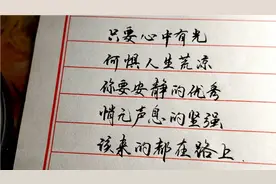 只要心中有光
何惧人生荒凉
你要安静的优秀
悄无声息的坚强
该来的都在路上